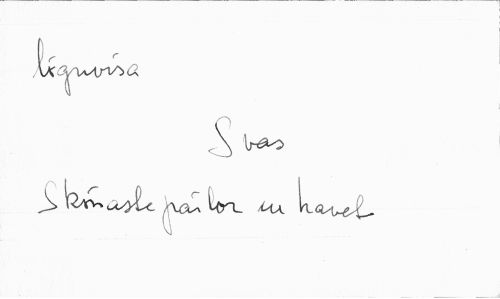 lögnvisa
Svas
Skönaste pärlor ur havet